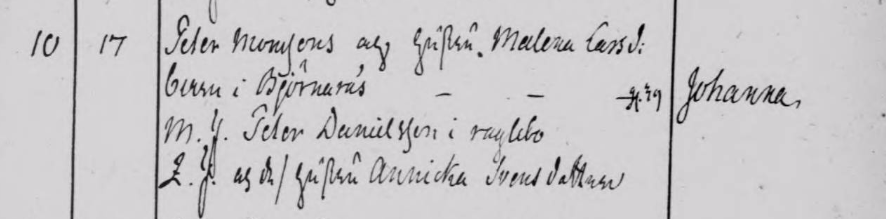 10 17 Peter Monsons og hustru. Malena Lars d:
barn i Björnarås — — Johanna,
M. J. Peter Danielsson i
Q. J. og d/ hustru Annicka Svens dotter